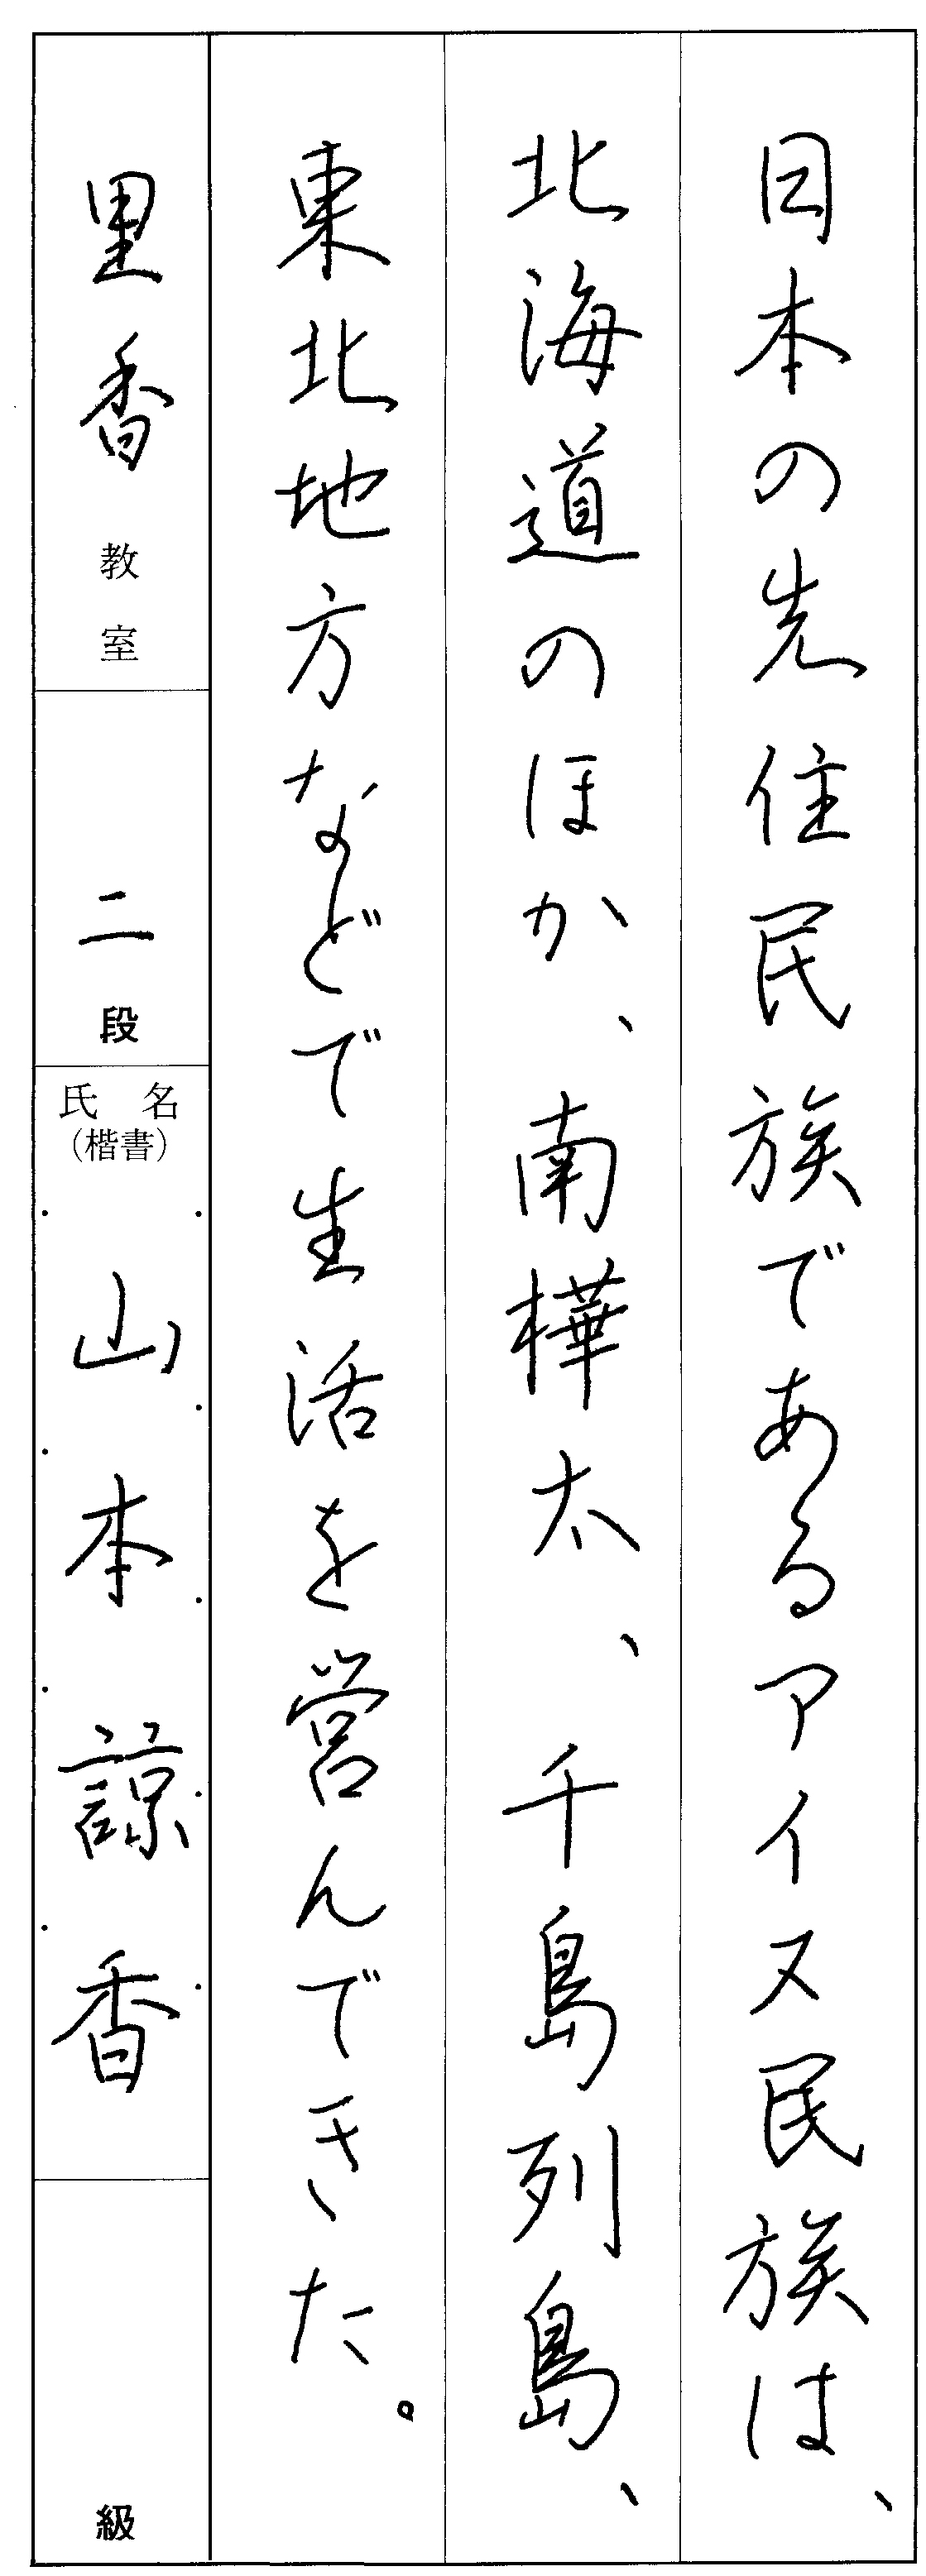 日本の先住民族であるアイヌ民族は、
北海道のほか、南樺太、千島列島、
東北地方などで生活を営んできた。
里香教室
二段
氏名
(楷書)
山本諒香
級